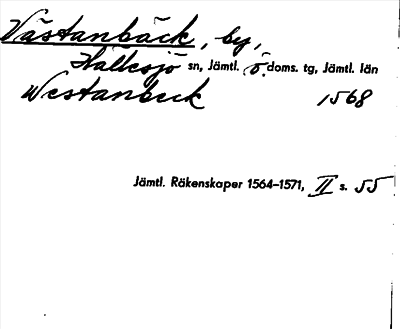 Västanbäck, by,
Hällesjö sn, Jämtl. ö. doms. tg, Jämtl. län
Westanbeck 1568
Jämtl. Räkenskaper 1564–1571, II s. 55